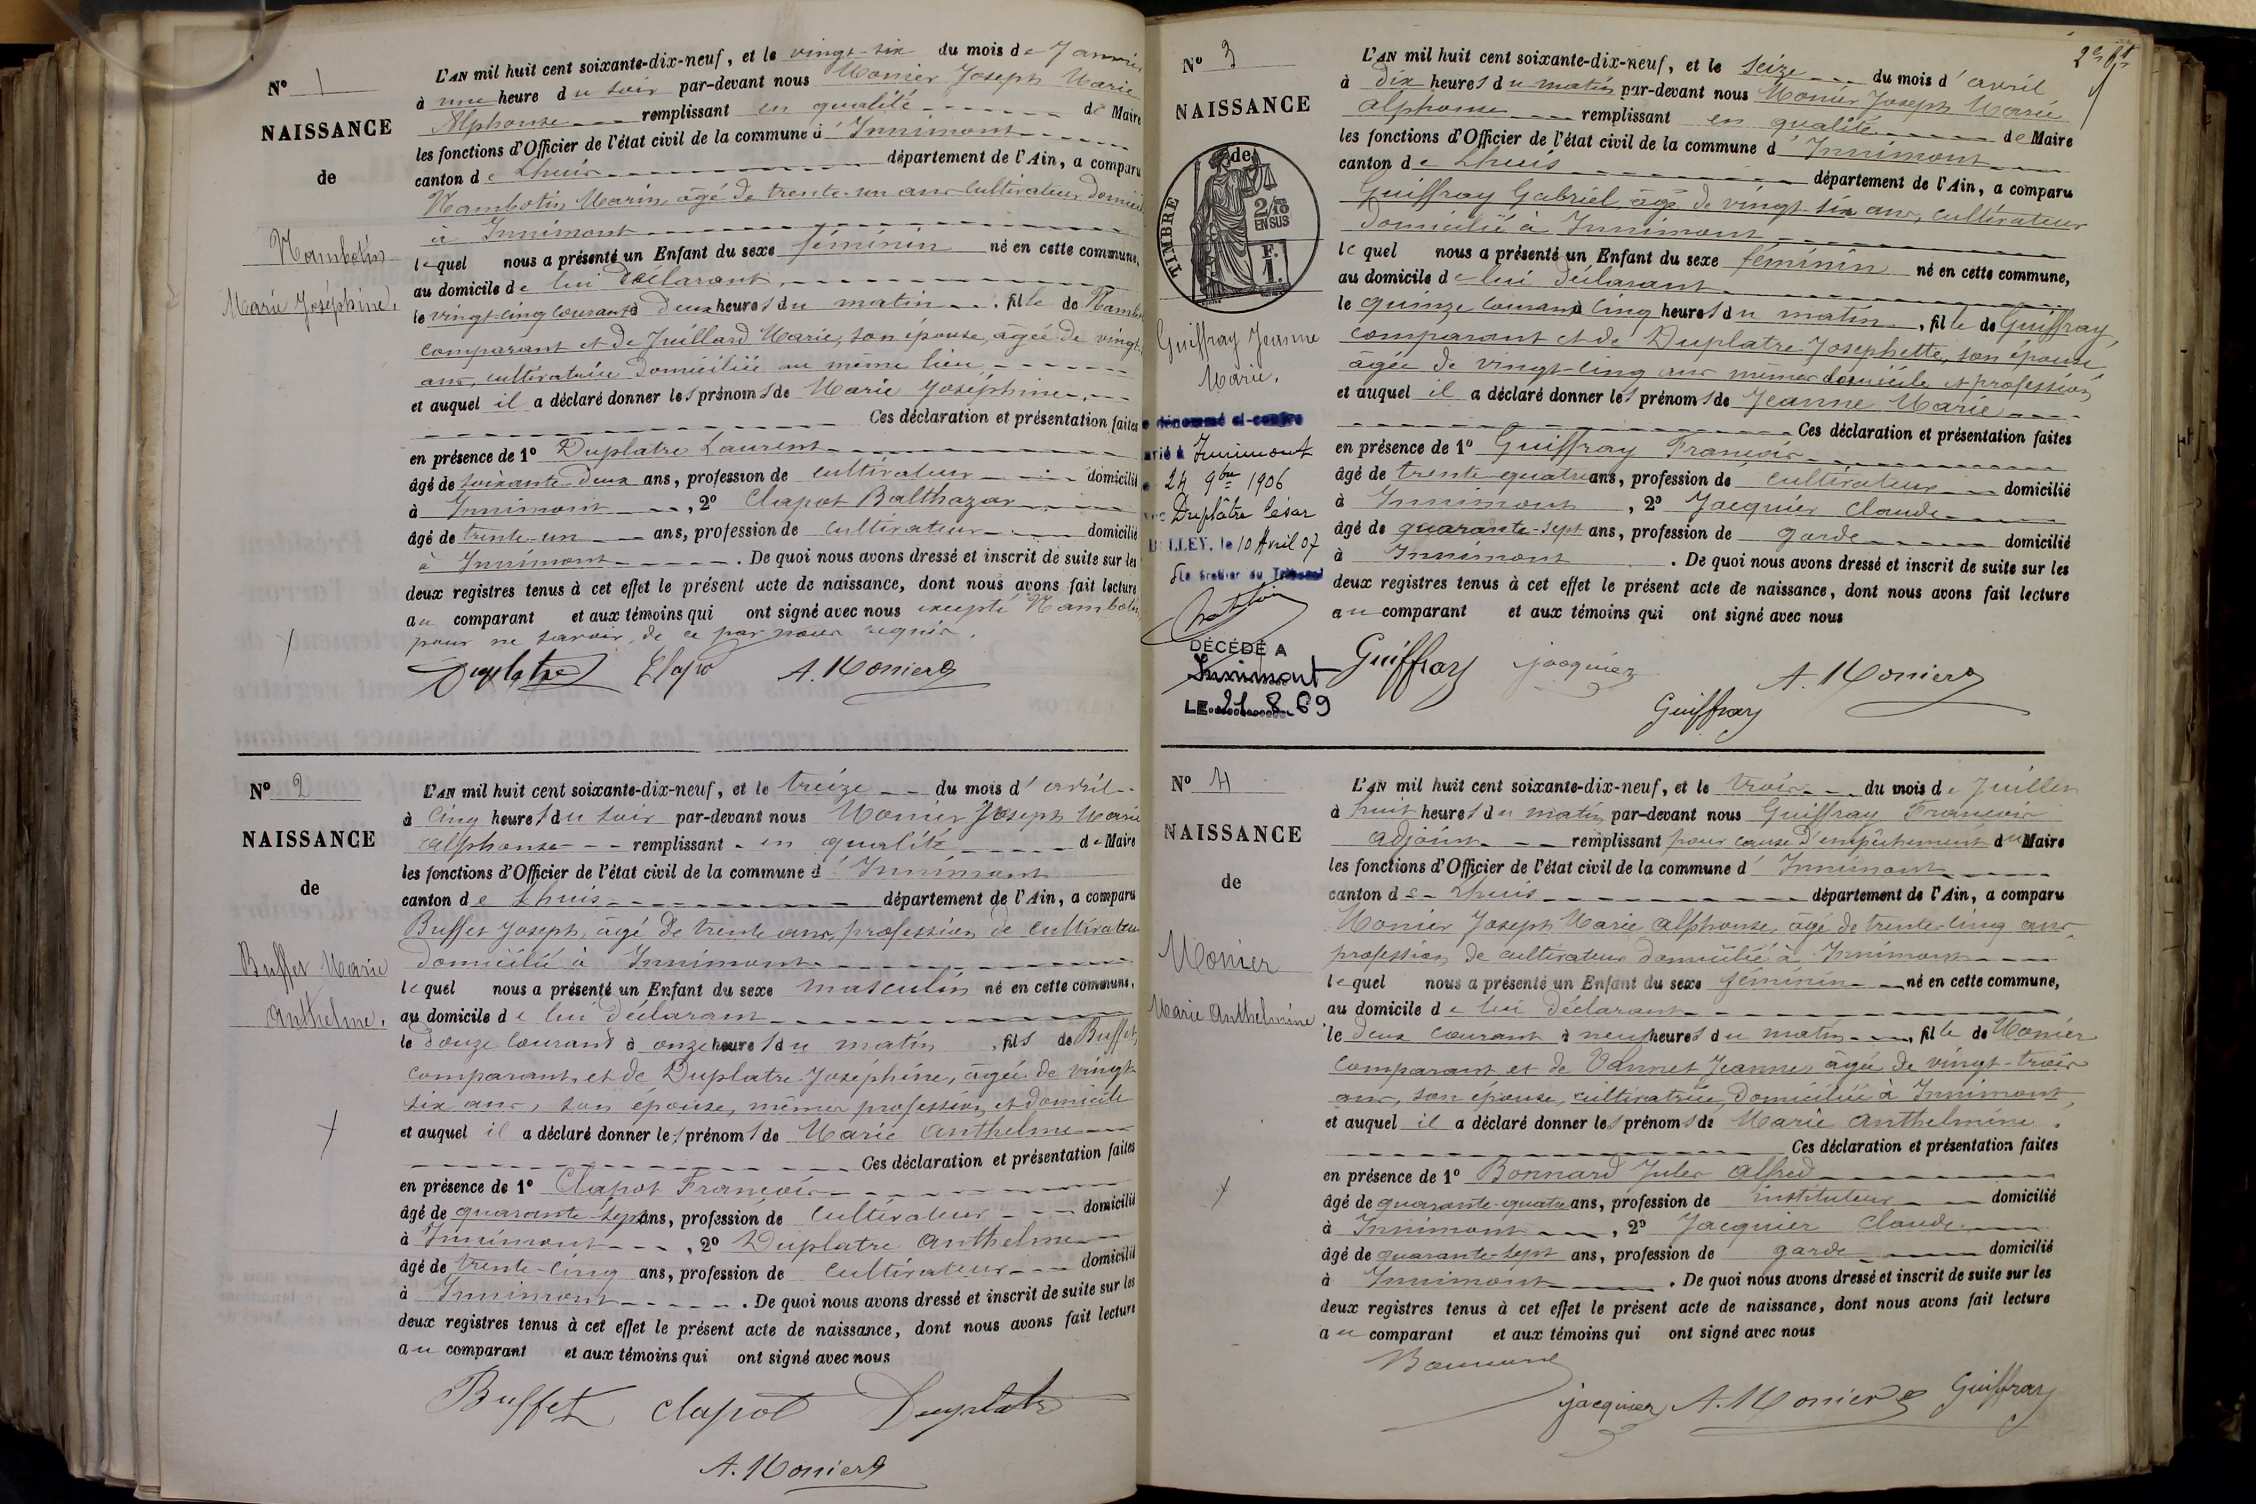 N° 1
NAISSANCE
de
Nambotin
Marie Joséphine.
L'AN mil huit cent soixante-dix-neuf, et le vingt-six du mois de Janvier
à une heure du soir par-devant nous Monier Joseph Marie
Alphonse remplissant en qualité de Maire
les fonctions d'Officier de l'état civil de la commune d'Innimont
canton de Lhuis département de l'Ain, a comparu
Nambotin Marin âgé de trente-un ans cultivateur domicilié
à Innimont
lequel nous a présenté un Enfant du sexe féminin né en cette commune,
au domicile de lui déclarant
le vingt-cinq courant à deux heures du matin, fille de Nambotin
comparant et de Juillard Marie, son épouse, âgée de vingt
ans, cultivatrice domiciliée au même lieu
et auquel il a déclaré donner les prénoms de Marie Joséphine.
Ces déclaration et présentation faites
en présence de 1° Duplatre Laurent
âgé de soixante-deux ans, profession de cultivateur domicilié
à Innimont, 2° Clapot Balthazar
âgé de trente-un ans, profession de cultivateur domicilié
à Innimont. De quoi nous avons dressé et inscrit de suite sur les
deux registres tenus à cet effet le présent acte de naissance, dont nous avons fait lecture
au comparant et aux témoins qui ont signé avec nous excepté Nambotin
pour ne savoir, de ce par nous requis.
Duplatre Clapo A. Monier
N° 2
NAISSANCE
de
Buffet Marie
Anthelme.
L'AN mil huit cent soixante-dix-neuf, et le treize du mois d'avril
à cinq heures du soir par-devant nous Monier Joseph Marie
alphonse remplissant en qualité de Maire
les fonctions d'Officier de l'état civil de la commune d'Innimont
canton de Lhuis département de l'Ain, a comparu
Buffet Joseph, âgé de trente ans, profession de cultivateur
domicilié à Innimont
lequel nous a présenté un Enfant du sexe masculin né en cette commune,
au domicile de lui déclarant
le douze courant à onze heures du matin, fils de Buffet,
comparant, et de Duplatre Joséphine, âgée de vingt
six ans, son épouse, mêmes profession et domicile
et auquel il a déclaré donner les prénoms de Marie Anthelme
Ces déclaration et présentation faites
en présence de 1° Clapot François
âgé de quarante-sept ans, profession de cultivateur domicilié
à Innimont, 2° Duplatre Anthelme
âgé de trente-cinq ans, profession de cultivateur domicilié
à Innimont. De quoi nous avons dressé et inscrit de suite sur les
deux registres tenus à cet effet le présent acte de naissance, dont nous avons fait lecture
au comparant et aux témoins qui ont signé avec nous
Buffet Clapot Duplatre
A. Monier
N° 3
NAISSANCE
de
TIMBRE
2/10 EN SUS
F. 1.
Guiffray Jeanne
Marie.
dénommé ci-contre
marié à Innimont
24 9bre 1906
avec Duplâtre César
BELLEY, le 10 Avril 07
Le Greffier du Tribunal
DÉCÉDÉ A
Innimont
LE 21.8.69
L'AN mil huit cent soixante-dix-neuf, et le seize du mois d'avril
à dix heures du matin par-devant nous Monier Joseph Marie
alphonse remplissant en qualité de Maire
les fonctions d'Officier de l'état civil de la commune d'Innimont
canton de Lhuis département de l'Ain, a comparu
Guiffray Gabriel âgé de vingt-six ans, cultivateur
domicilié à Innimont
lequel nous a présenté un Enfant du sexe féminin né en cette commune,
au domicile de lui déclarant
le quinze courant à cinq heures du matin, fille de Guiffray,
comparant et de Duplatre Josephette, son épouse,
âgée de vingt-cinq ans mêmes domicile et profession
et auquel il a déclaré donner les prénoms de Jeanne Marie
Ces déclaration et présentation faites
en présence de 1° Guiffray François
âgé de trente-quatre ans, profession de cultivateur domicilié
à Innimont, 2° Jacquier Claude
âgé de quarante-sept ans, profession de garde domicilié
à Innimont. De quoi nous avons dressé et inscrit de suite sur les
deux registres tenus à cet effet le présent acte de naissance, dont nous avons fait lecture
au comparant et aux témoins qui ont signé avec nous
Guiffray jacquier A. Monier
Guiffray
N° 4
NAISSANCE
de
Monier
Marie Anthelmine
L'AN mil huit cent soixante-dix-neuf, et le trois du mois de Juillet
à huit heures du matin par-devant nous Guiffray François
adjoint remplissant pour cause d'empêchement du Maire
les fonctions d'Officier de l'état civil de la commune d'Innimont
canton de Lhuis département de l'Ain, a comparu
Monier Joseph Marie alphonse, âgé de trente-cinq ans,
profession de cultivateur domicilié à Innimont
lequel nous a présenté un Enfant du sexe féminin né en cette commune,
au domicile de lui déclarant
le deux courant à neuf heures du matin, fille de Monier
comparant et de Vannet Jeanne, âgée de vingt-trois
ans, son épouse, cultivatrice, domiciliée à Innimont,
et auquel il a déclaré donner les prénoms de Marie Anthelmine.
Ces déclaration et présentation faites
en présence de 1° Bonnard Jules Alfred
âgé de quarante-quatre ans, profession de instituteur domicilié
à Innimont, 2° Jacquier Claude
âgé de quarante-sept ans, profession de garde domicilié
à Innimont. De quoi nous avons dressé et inscrit de suite sur les
deux registres tenus à cet effet le présent acte de naissance, dont nous avons fait lecture
au comparant et aux témoins qui ont signé avec nous
Bonnard
jacquier A. Monier Guiffray